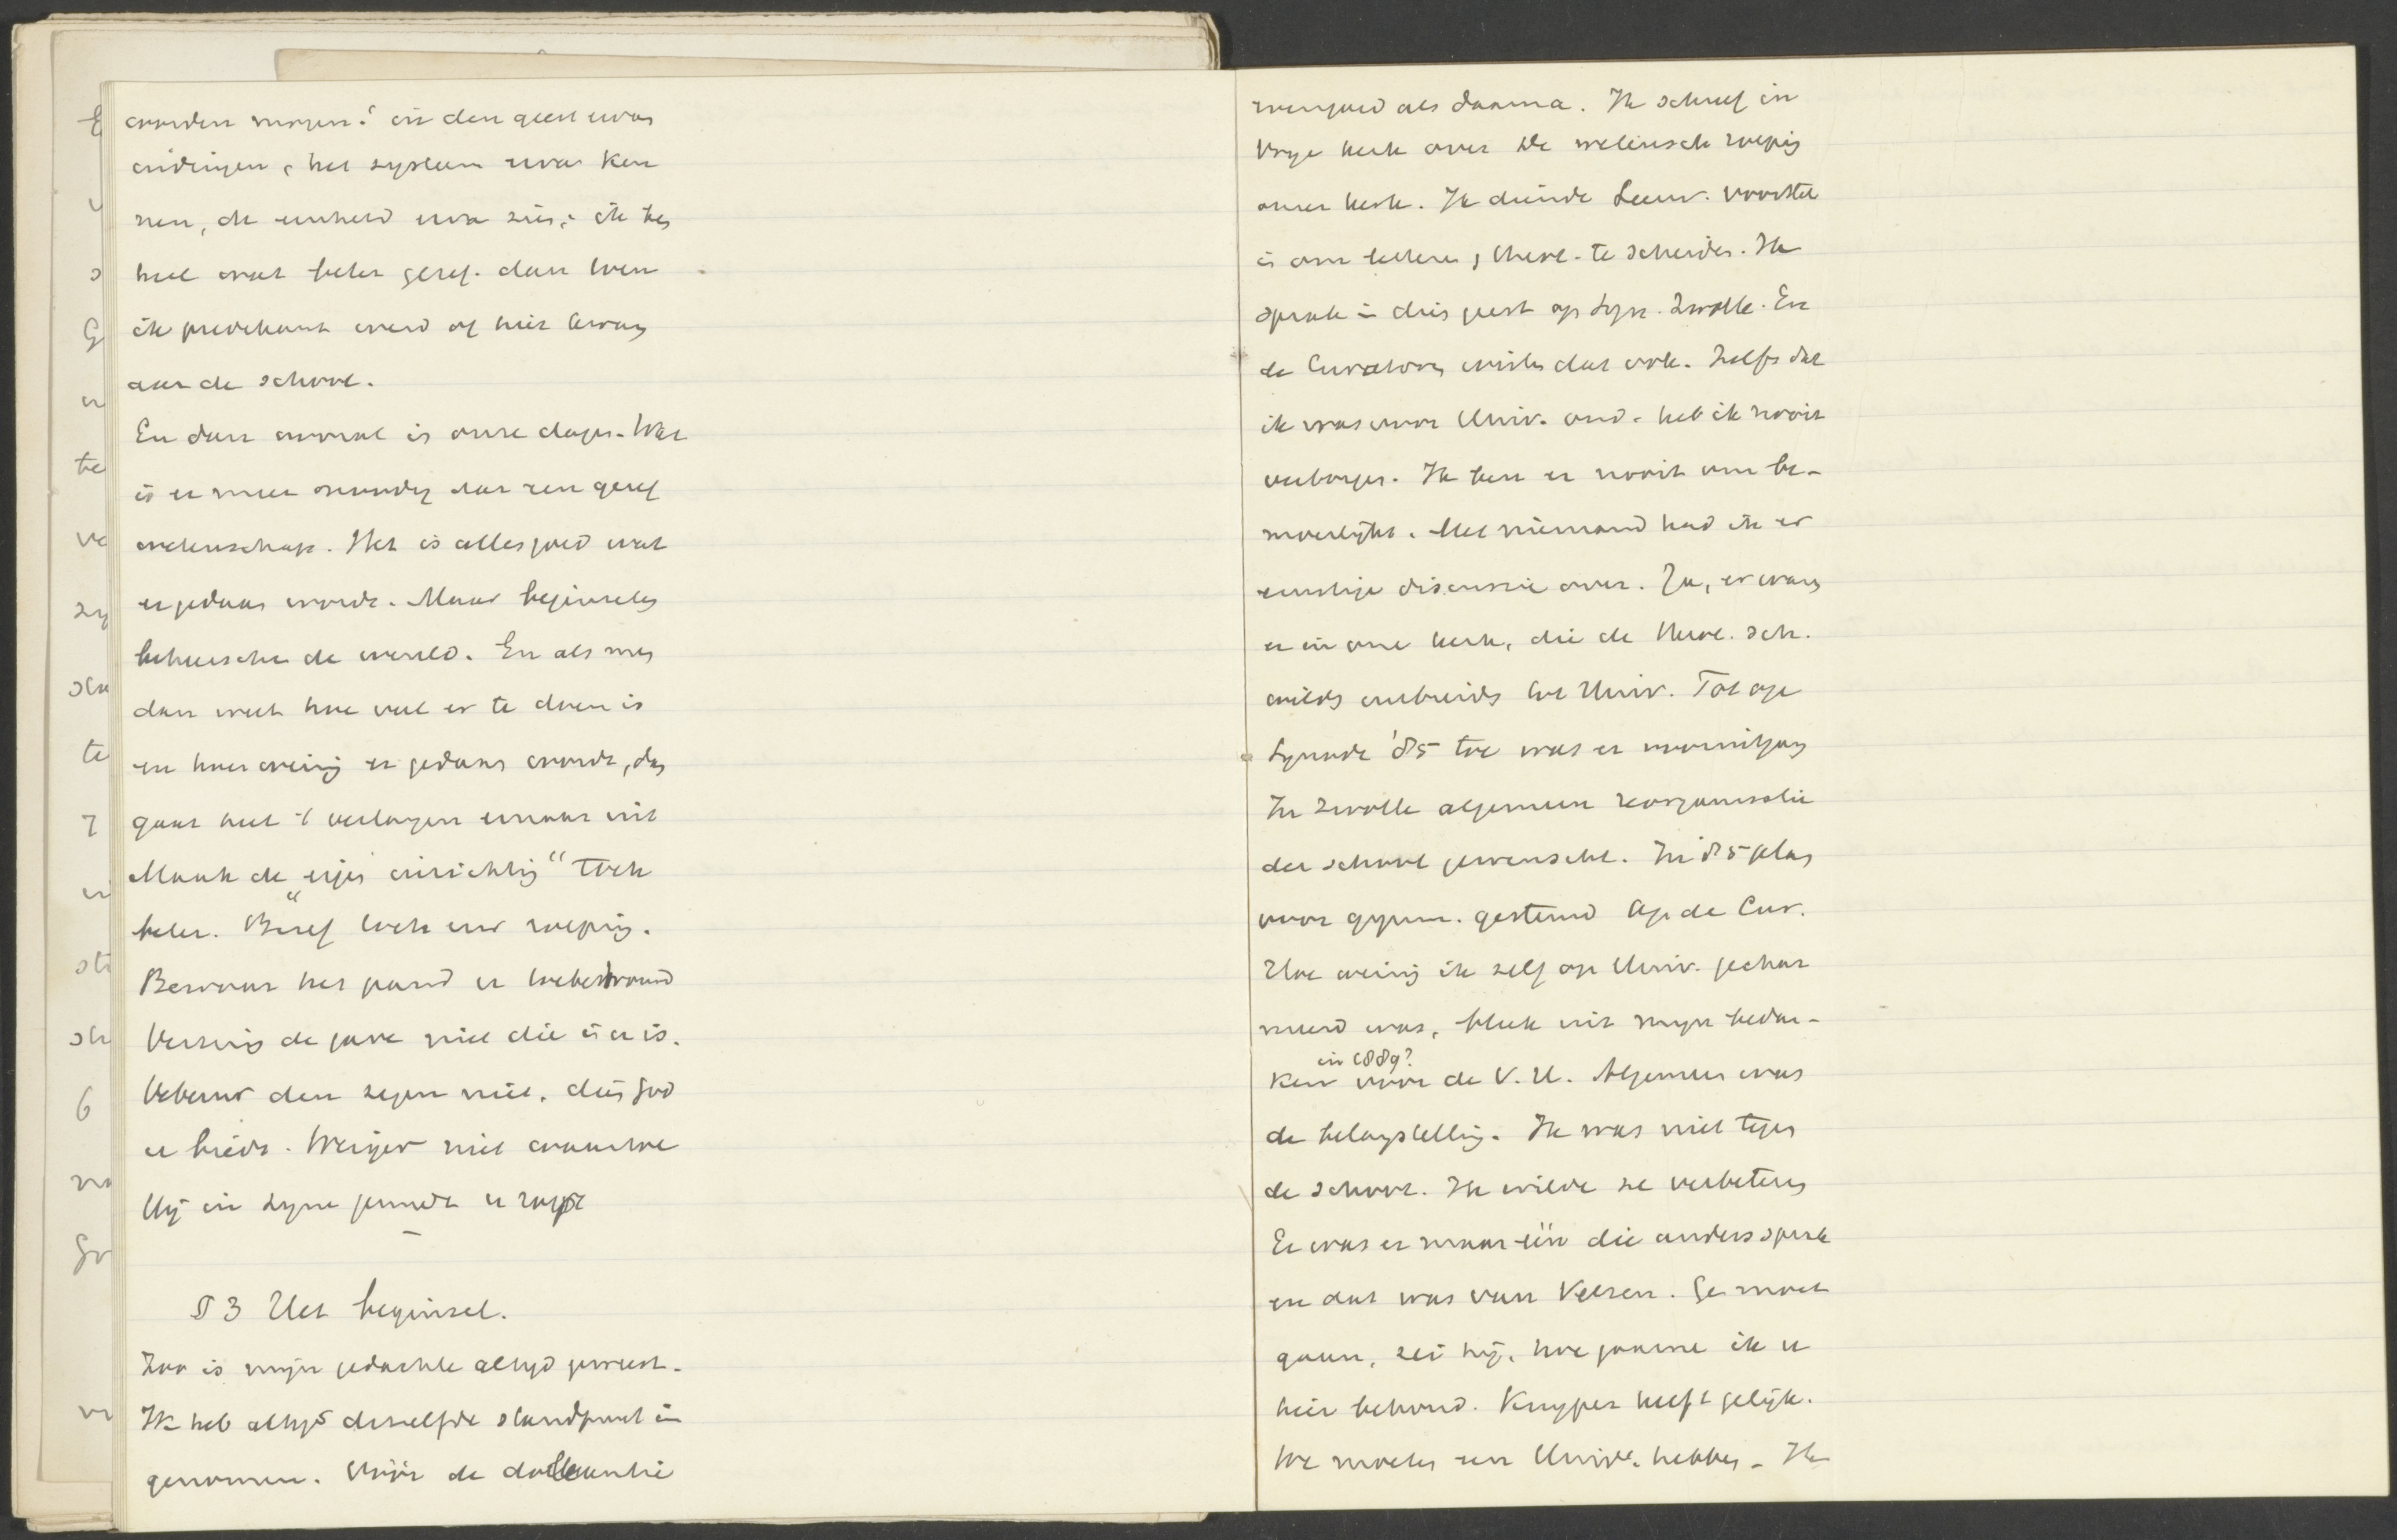 worden mogen: in den geest ervan
indringen, het systeem ervan ken
nen, de eenheid ervan zien; ik ben
heel wat beter geref. dan toen
ik predikant werd of hier kwam
aan de school.
En dan vooral in onze dagen. Wat
is er meer noodig dan een geref
wetenschap. Het is alles goed wat
er gedaan wordt. Maar beginselen
beheerschen de wereld. En als men
dan weet hoe veel er te doen is
en hoe weinig er gedaan wordt, dan
gaat heel 't verlangen ernaar uit
Maak de "eigen inrichting" toch
beter. Besef toch uw roeping.
Bewaar het pand u toebetrouwd
Verzuim de gave niet die in u is.
Verbeur den zegen niet, dien God
u biedt. Weiger niet waartoe
Hij in Zijne genade u roept
§ 3 Het beginsel.
Zoo is mijn gedachte altijd geweest.
Ik heb altijd hetzelfde standpunt in
genomen. Vóór de doleantie
evengoed als daarna. Ik schreef in
Vrije kerk over De wetensch. roeping
onzer kerk. Ik diende Leeuw. voorstel
in om letteren, theol. te scheiden. Ik
sprak in dien geest op Syn. Zwolle. En
de Curatoren wisten dat ook. Zelfs dat
ik was voor Univ. ond. heb ik nooit
verborgen. Ik ben er nooit om be-
moeilijkt. Met niemand had ik er
ernstige discussie over. Ja, er waren
er in onze kerk, die de Theol. Sch.
wilden uitbreiden tot Univ. Tot op
Synode '85 toe was er vooruitgang
In Zwolle algemeen reorganisatie
der school gewenscht. In '85 plan
voor gymn. gesteund op de Cur.
Hoe weinig ik zelf op Univ. gechar
meerd was, bleek uit mijn bedan-
in 1889?
ken voor de V. U. Algemeen was
de belangstelling. Ik was niet tegen
de school. Ik wilde ze verbeteren
Er was er maar één die anders sprak
en dat was van Velzen. Ge moet
gaan, zei hij, hoe gaarne ik u
hier behoud. Kuyper heeft gelijk.
We moeten een Univ. hebben. Ik